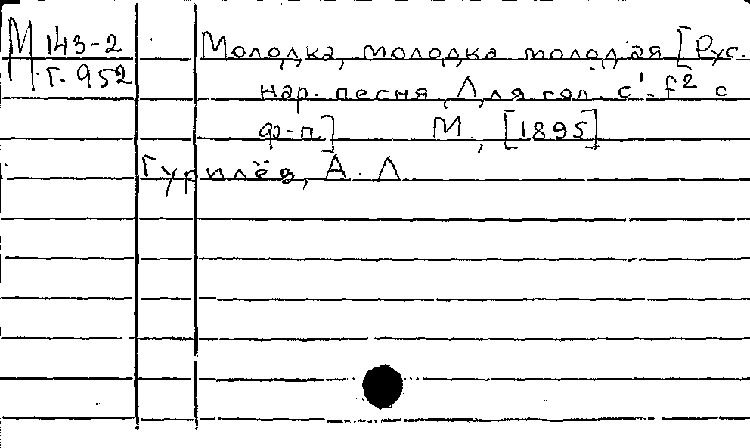 М 143-2 Молодка, молодка молодая [Рус.
Г-952 нар. песня. Для гол. c¹-f² с
ф-п.] М., [1895]
Гурилёв, А. Л.